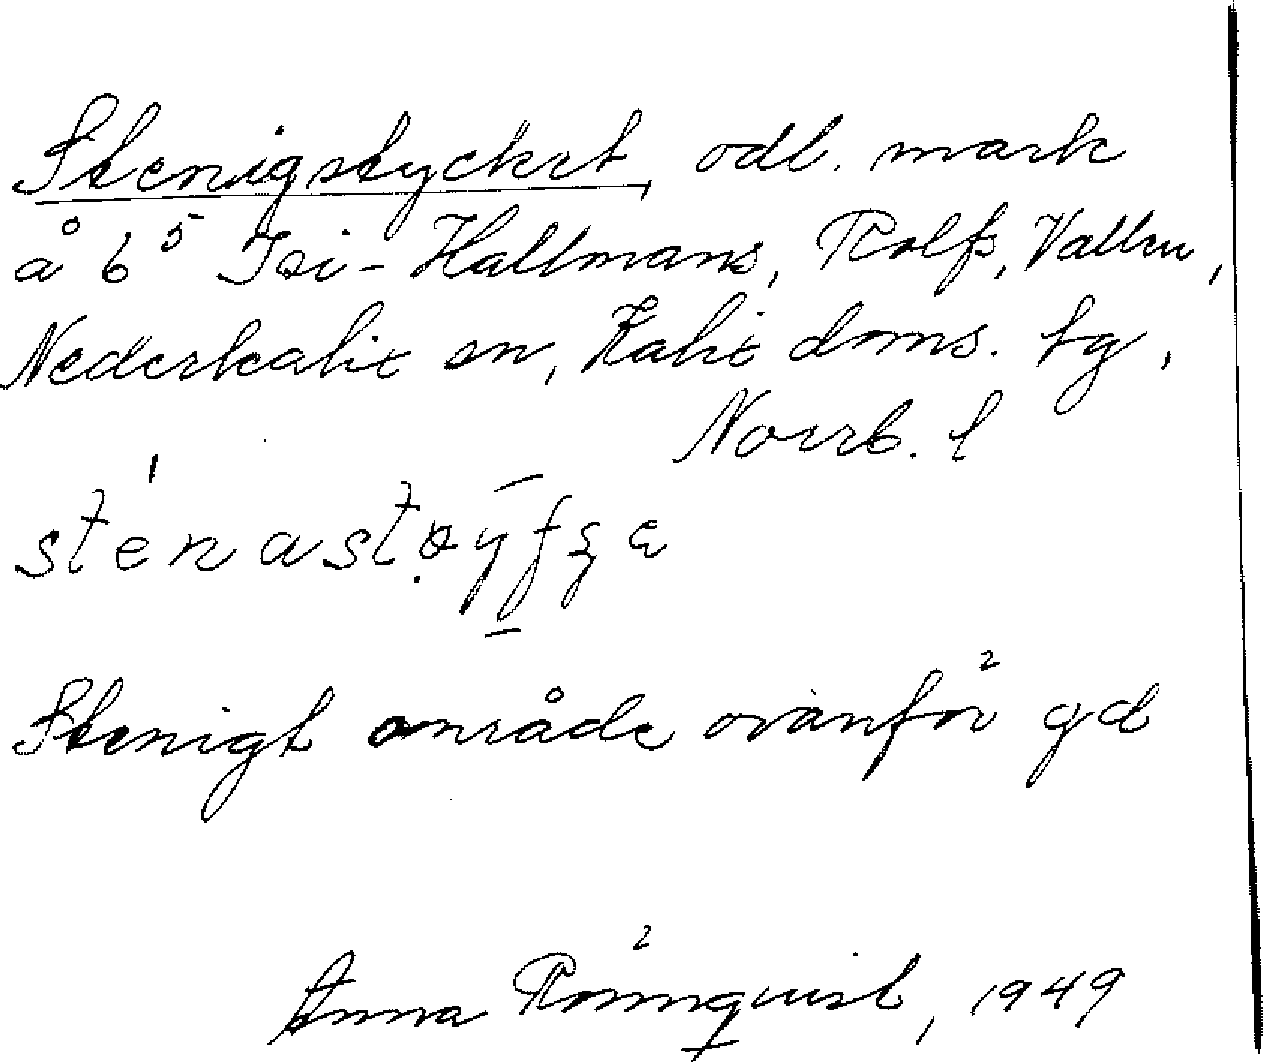 Stenigstycket, odl. mark
å 6⁵ Isi-Hallmans, Rolfs, Vallen,
Nederkalix sn, Kalix doms. tg,
Norrb. l
sténast
Stenigt område ovanför gd
Anna Rönnquist, 1949